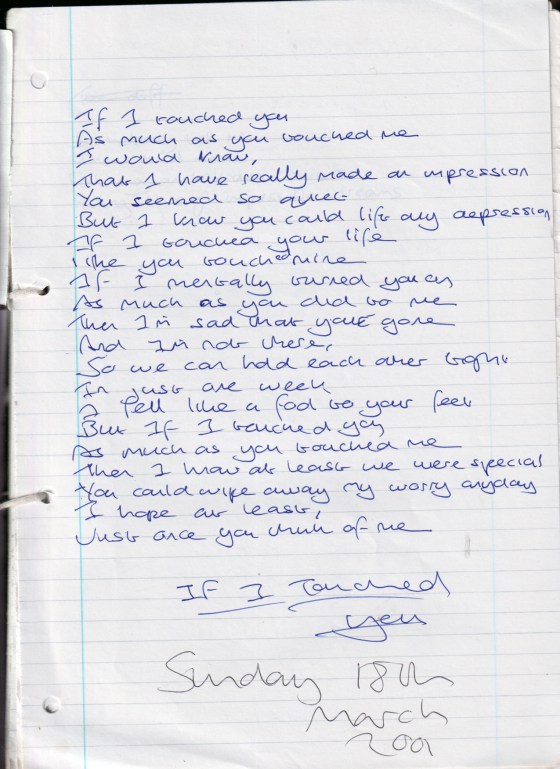 If I touched you
As much as you touched me
I would know,
That I have really made an impression
You seemed so quiet
But I know you could lift any depression
If I touched your life
like you touched mine
If I mentally turned you on
As much as you did to me
Then I'm sad that you'E gone
And I'm not there,
So we can hold each other tight
In just one week
I fell like a fool to your feet
But If I touched you
As much as you touched me
Then I know at least we were special
You could wipe away my worry anyday
I hope at least,
Just once you think of me
If I Touched
you
Sunday 18th
March
2001